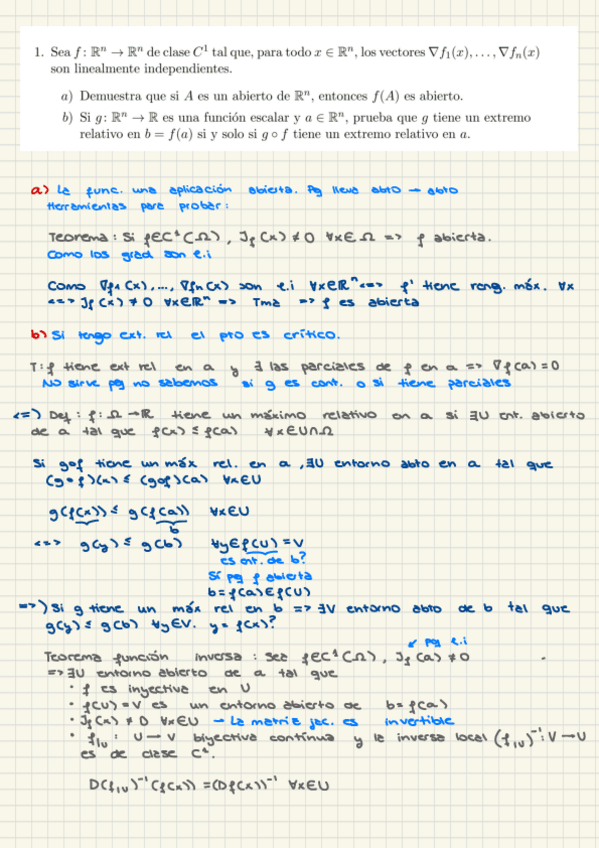 1. Sea f: ℝⁿ → ℝⁿ de clase C¹ tal que, para todo x ∈ ℝⁿ, los vectores ∇f₁(x), . . . , ∇fₙ(x)
son linealmente independientes.
a) Demuestra que si A es un abierto de ℝⁿ, entonces f(A) es abierto.
b) Si g: ℝⁿ → ℝ es una función escalar y a ∈ ℝⁿ, prueba que g tiene un extremo
relativo en b = f(a) si y solo si g ∘ f tiene un extremo relativo en a.
a) La func. una aplicación abierta. Pq lleva abto → abto
Herramientas para probar:
Teorema: Si f∈C¹(Ω), Jf(x) ≠ 0 ∀x∈Ω => f abierta.
Como los grad son l.i
Como ∇f₁(x),..., ∇fₙ(x) son l.i ∀x∈ℝⁿ <=> f' tiene rang. máx. ∀x
<=> Jf(x) ≠ 0 ∀x∈ℝⁿ => Tma => f es abierta
b) Si tengo ext. rel el pto es crítico.
T: f tiene ext rel en a y ∃ las parciales de f en a => ∇f(a) = 0
No sirve pq no sabemos si g es cont. o si tiene parciales
<=) Def: f: Ω→ℝ tiene un máximo relativo en a si ∃U ent. abierto
de a tal que f(x) ≤ f(a) ∀x∈U∩Ω
Si g∘f tiene un máx rel. en a, ∃U entorno abto en a tal que
(g∘f)(x) ≤ (g∘f)(a) ∀x∈U
g(f(x)) ≤ g(f(a)) ∀x∈U
b
<=> g(y) ≤ g(b) ∀y∈f(U) = V
es ent. de b?
Sí pq f abierta
b = f(a) ∈ f(U)
=>) Si g tiene un máx rel en b => ∃V entorno abto de b tal que
g(y) ≤ g(b) ∀y∈V. y = f(x)?
↙ pq l.i
Teorema función inversa: Sea f∈C¹(Ω), Jf(a) ≠ 0
=> ∃U entorno abierto de a tal que
• f es inyectiva en U
• f(U) = V es un entorno abierto de b = f(a)
• Jf(x) ≠ 0 ∀x∈U → La matriz jac. es invertible
• f|U : U → V biyectiva continua y la inversa local (f|U)⁻¹: V → U
es de clase C¹.
D(f|U)⁻¹(f(x)) = (Df(x))⁻¹ ∀x∈U